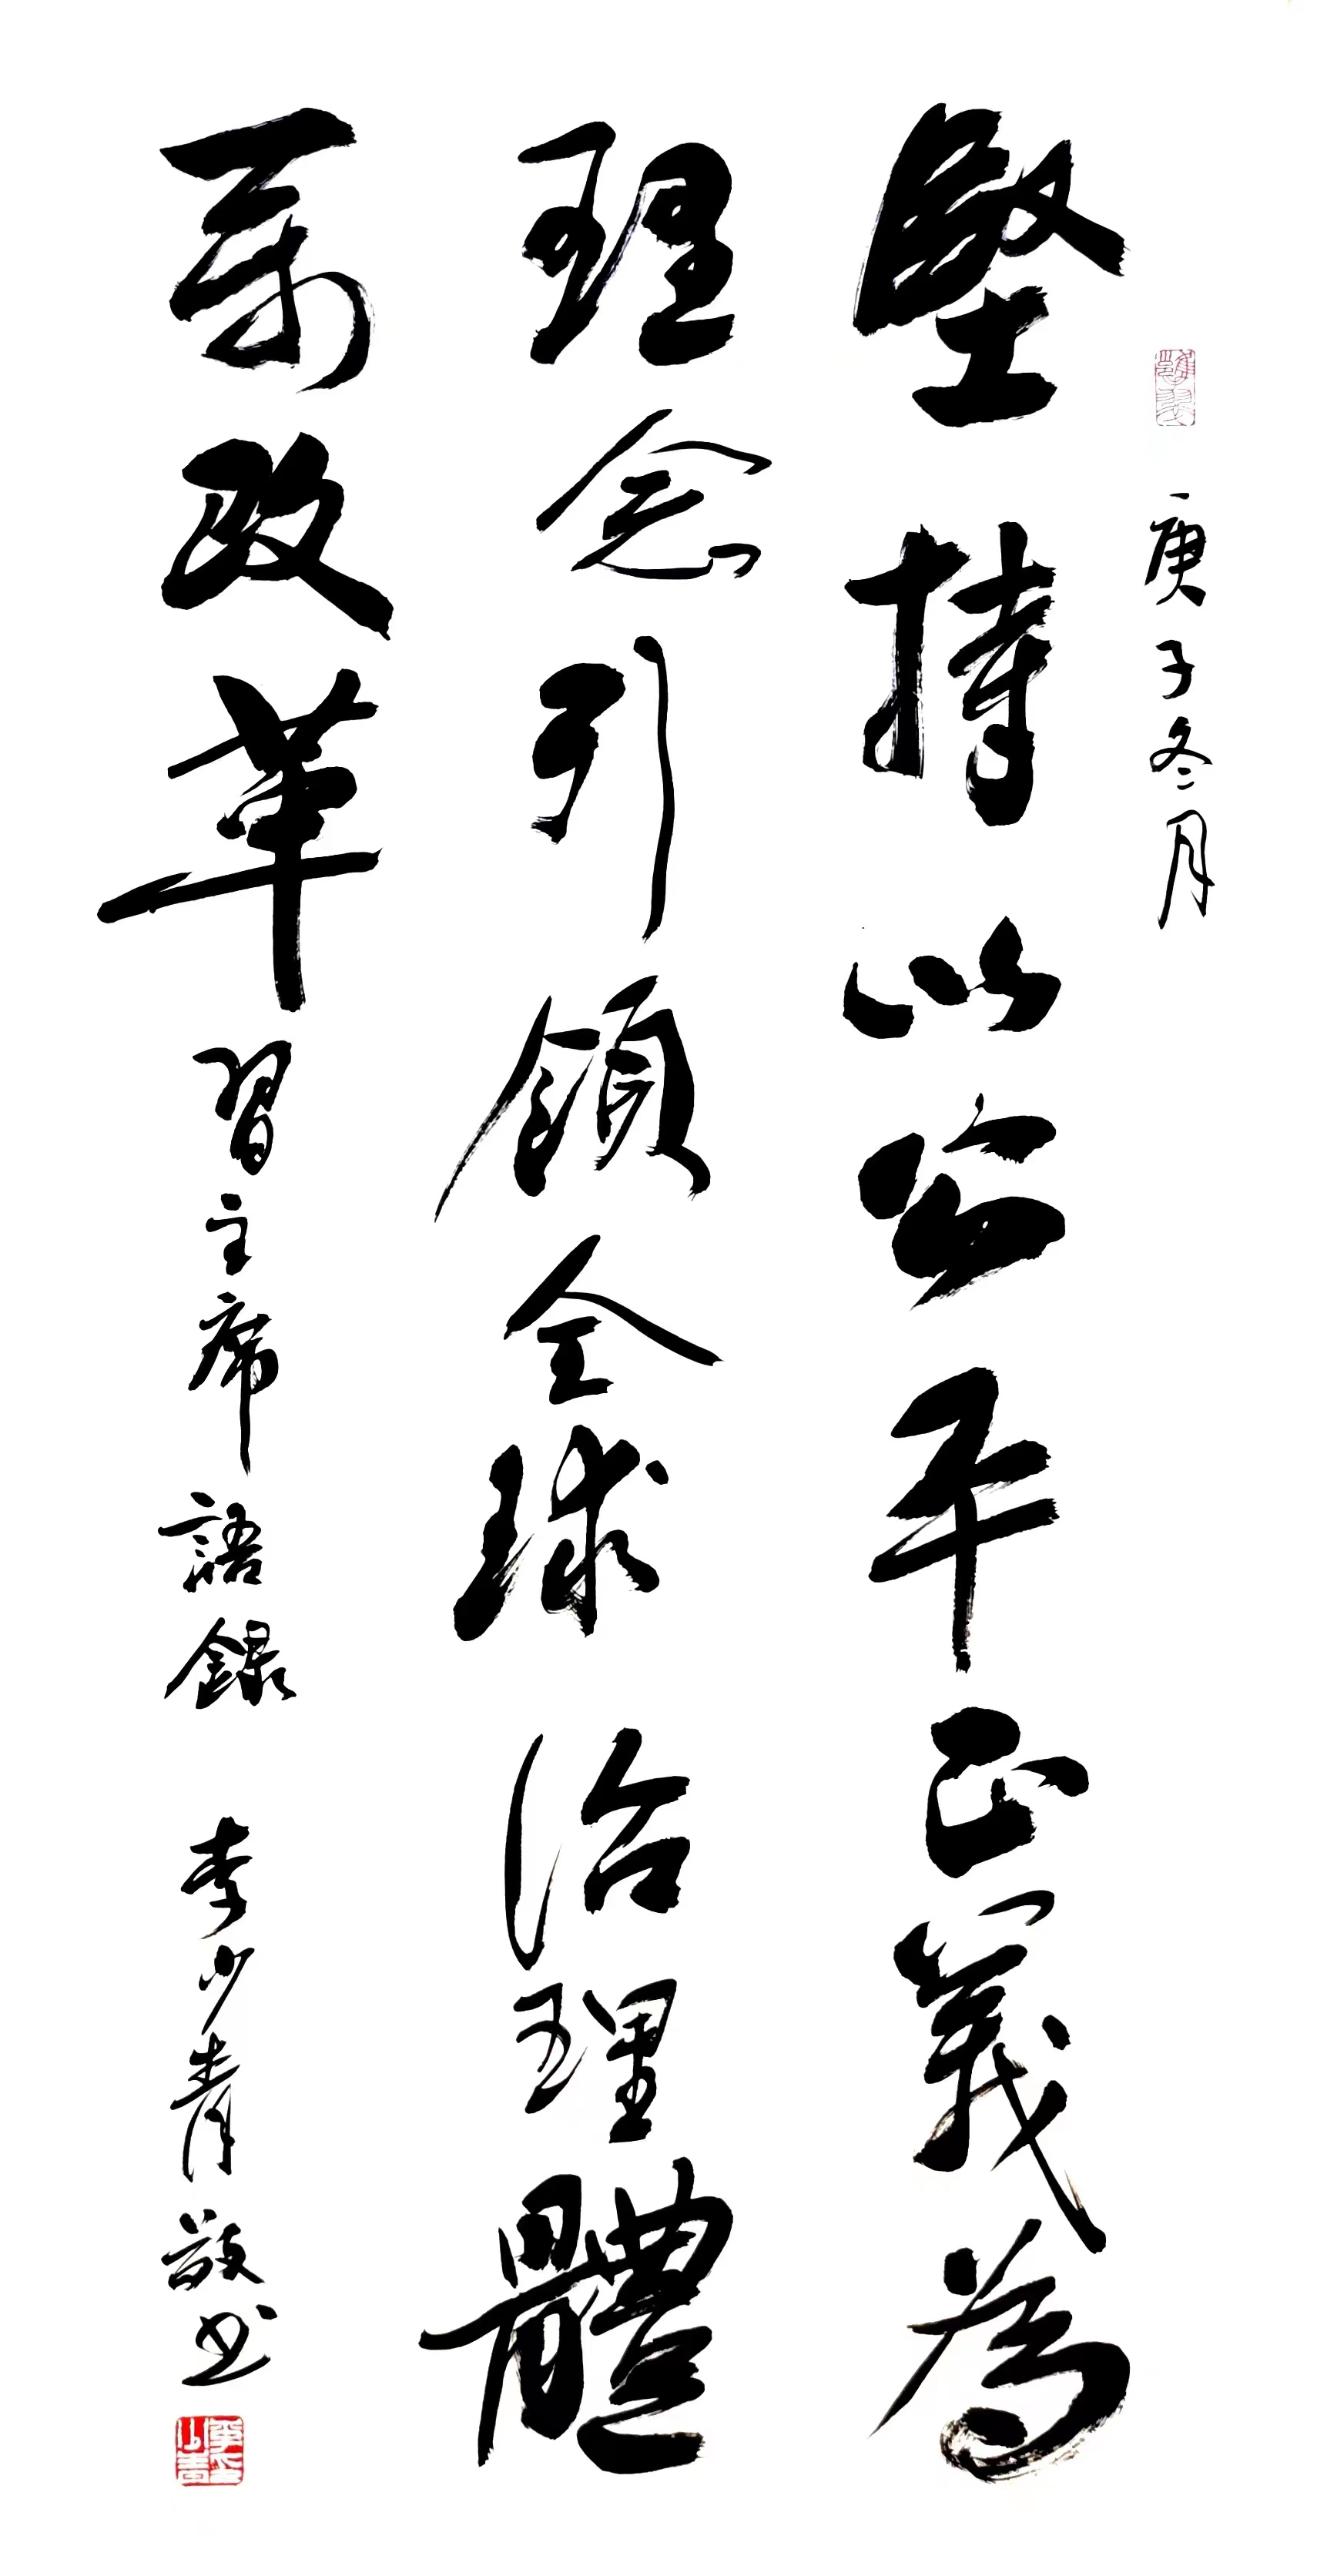 庚子冬月
堅持以公平正義為
理念引領全球治理體
系改革習主席語錄 李少青敬书